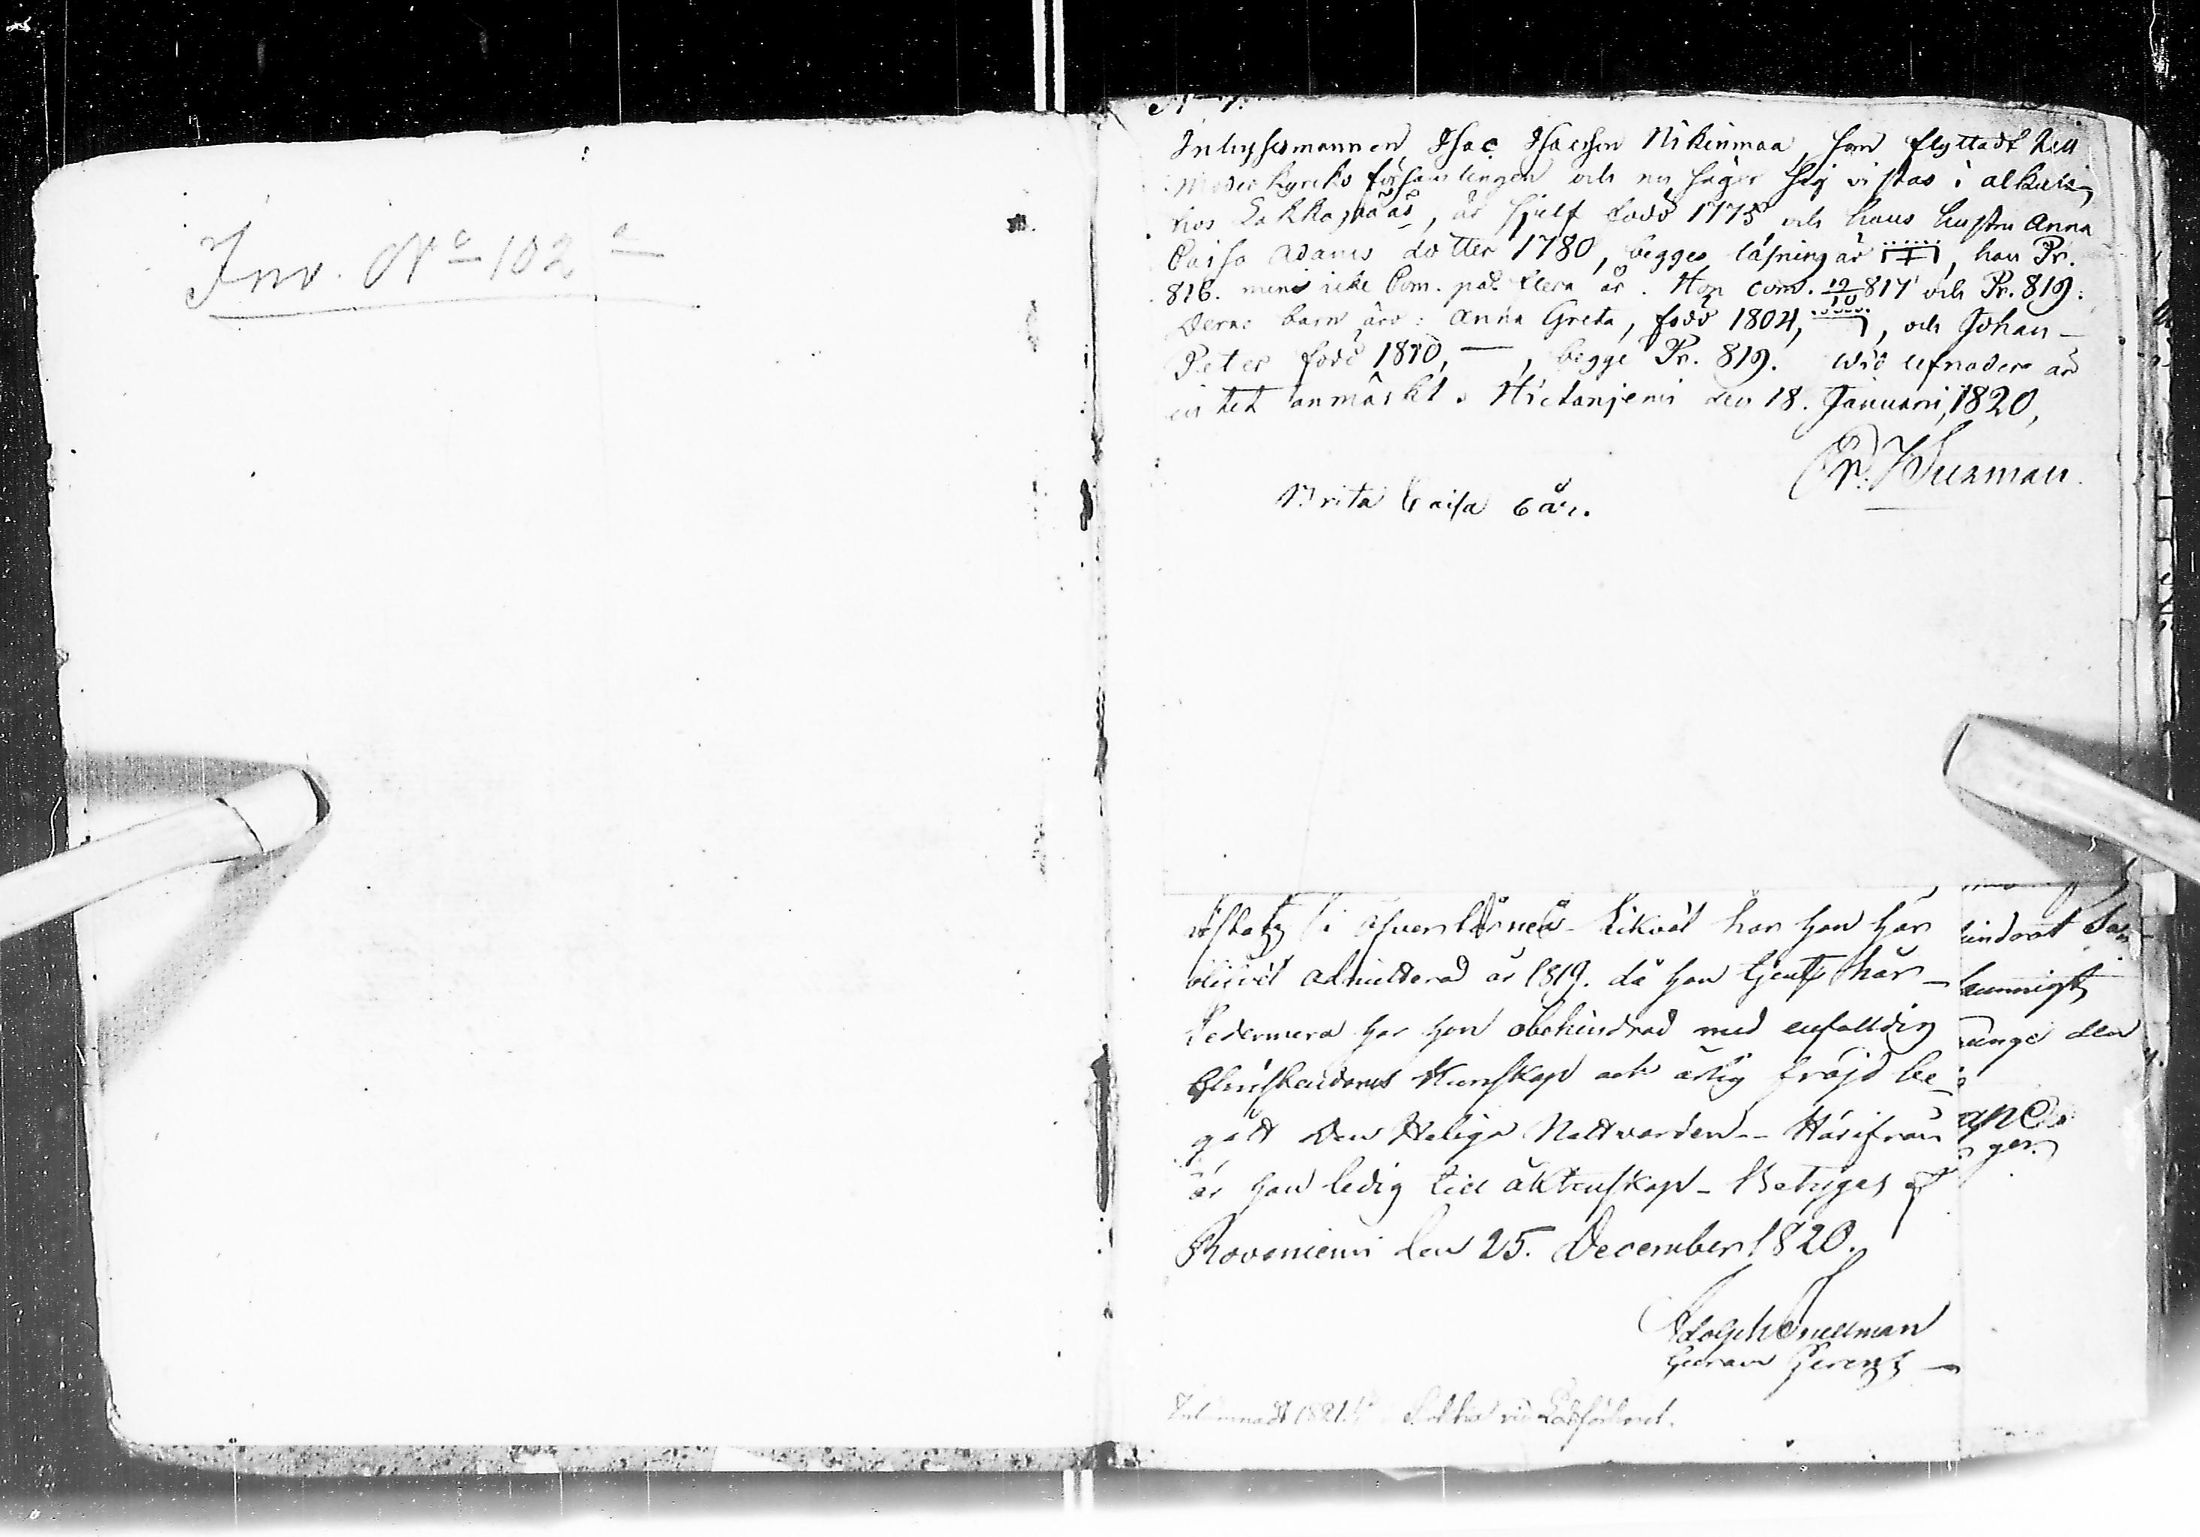 Inv. No 102
Inhysesmannen Isac Isacsson Nikinmaa, som flyttadt till
Moderkyrko församlingen och nu säger sig vistas i alkula,
hos Lakkapää, är sjelf född 1775 och hans hustru Anna
Caisa Adams dotter 1780, begges läsning är, han Pr.
816. men icke Com. på flera år. Hon com. 19/10 817 och Pr. 819.
Deras barn äro: Anna Greta, född 1804, och Johan
Peter född 1810, —, begge Pr. 819. Wid lefnaden är
intet anmärkt. Hietanjemi den 18. Januarii, 1820,
Brita Caisa 6 år.
i Öfvertårneå. Likväl har han här
blifvit admitterad år 1819. då han tjent här —
Sedermera har han obehindrad med enfalldig
Christendoms Kunskap och ärlig fräjd be-
gått Den Heliga Nattvarden -- Härifrån
är han ledig till äktenskap - Betygas af
Rovaniemi den 25. December 1820.
Adolph Snellman